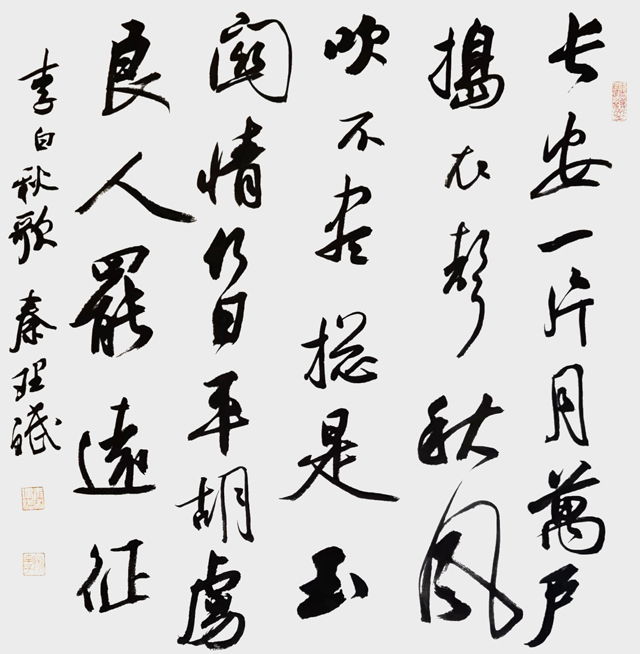 长安一片月萬戶
搗衣聲秋風
吹不尽揔是玉
關情何日平胡虜
良人罷遠征
李白秋歌 秦理